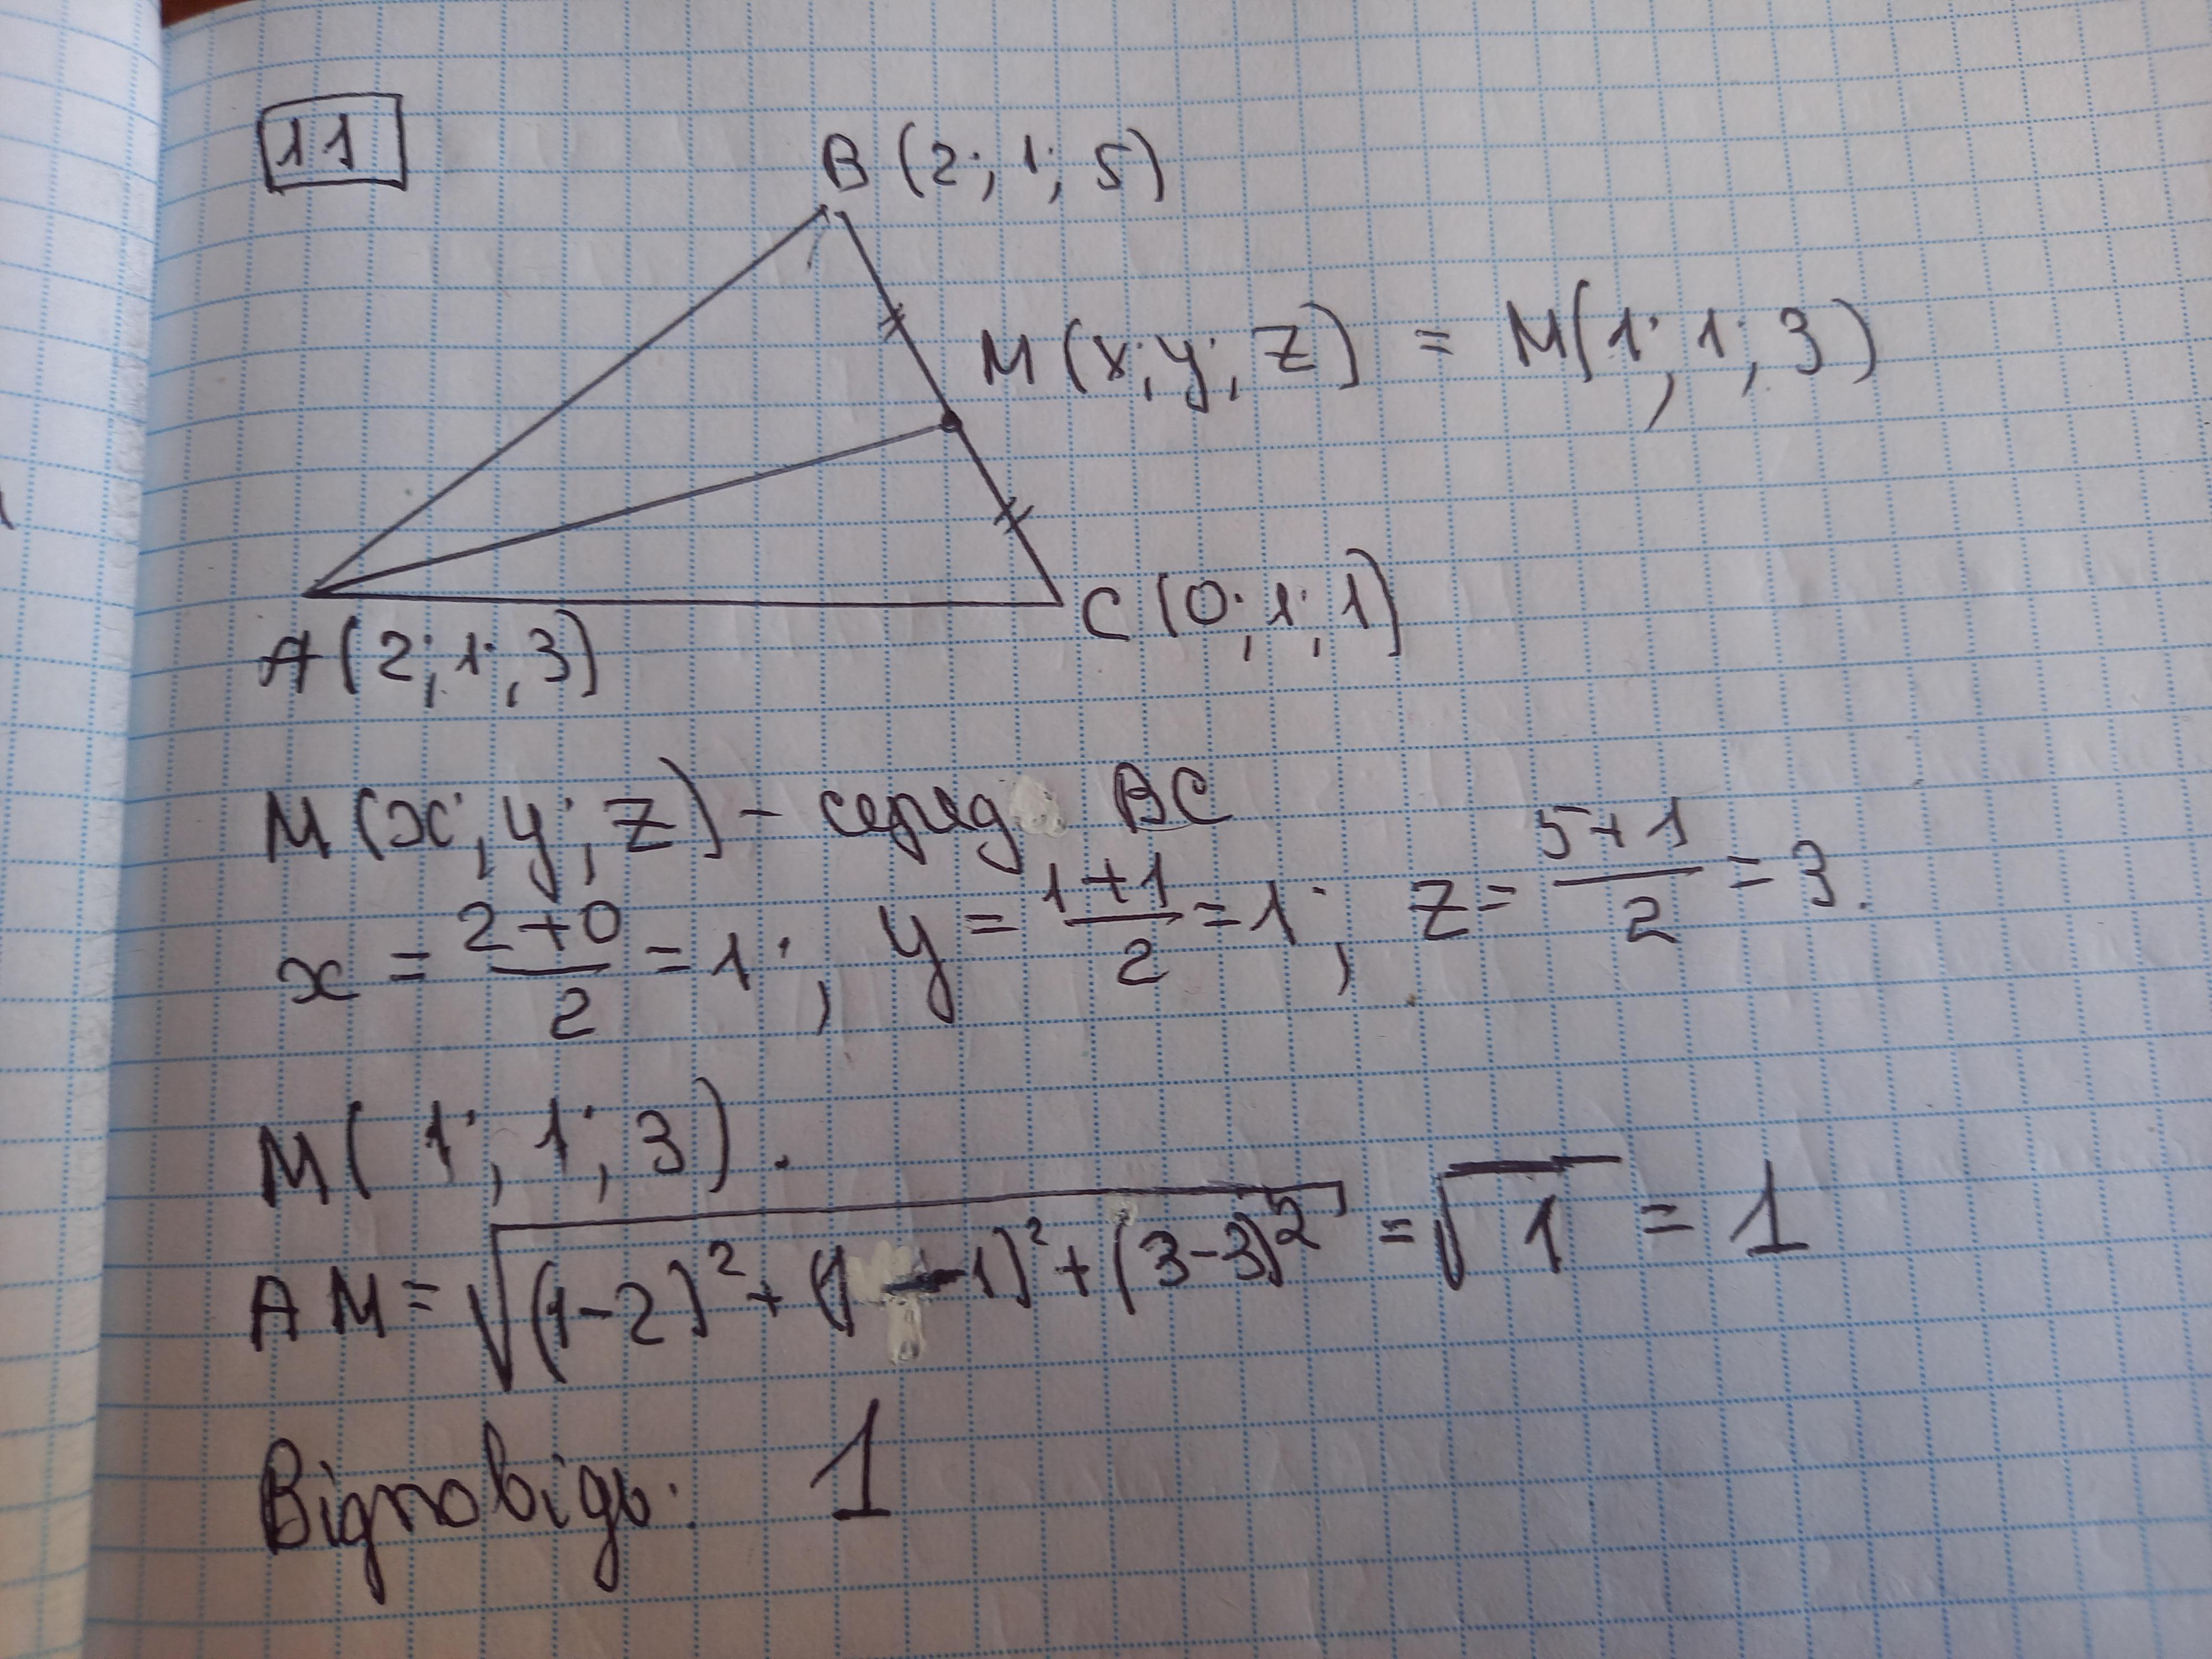 11
B (2; 1; 5)
M (x; y; z) = M(1; 1; 3)
C (0; 1; 1)
A (2; 1; 3)
M (x; y; z) - серед BC
x = 2+0/2 = 1; y = 1+1/2 = 1; z = 5+1/2 = 3.
M( 1; 1; 3).
AM = √((1-2)² + (1-1)² + (3-3)²) = √1 = 1
Відповідь: 1